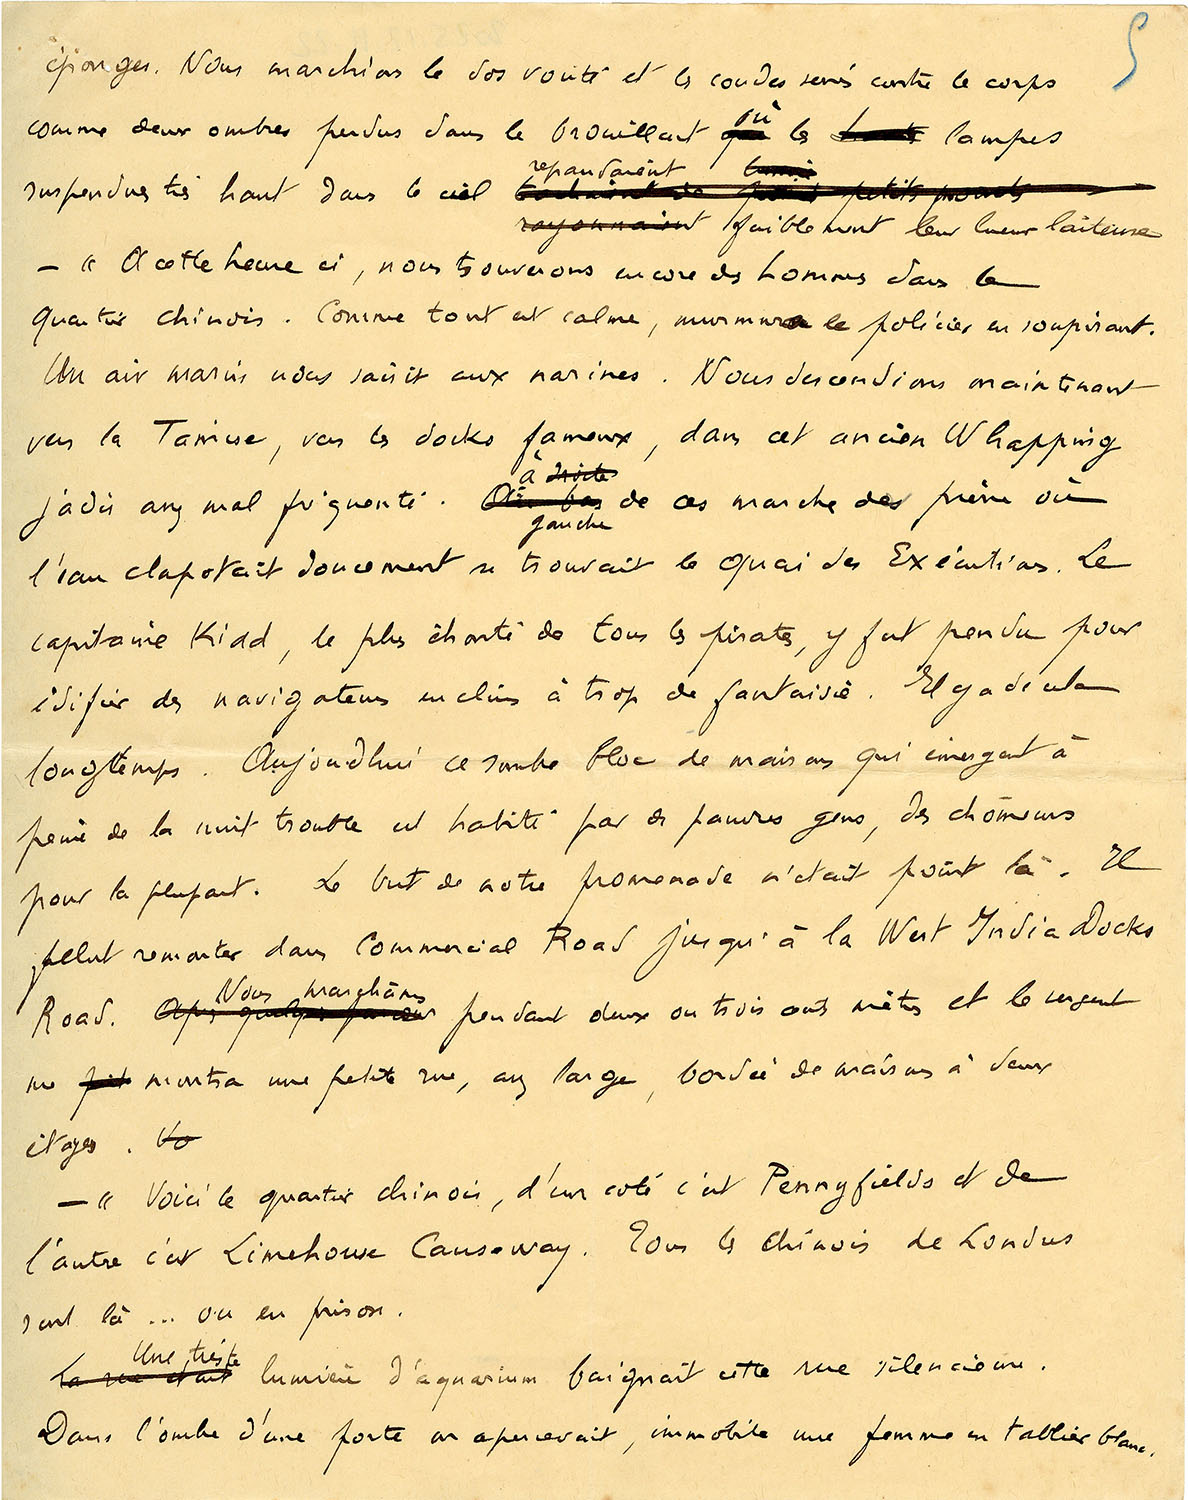 5
éponges. Nous marchions le dos vouté et les coudes serrés contre le corps
comme deux ombres perdus dans le brouillard où les lampes
suspendues très haut dans le ciel repandaient
rayonnaient faiblement leur lueur laiteuse
— « A cette heure ci, nous trouverons encore des hommes dans le
quartier chinois. Comme tout est calme, murmura le policier en soupirant.
Un air marin nous saisit aux narines. Nous descendions maintenant
vers la Tamise, vers les docks fameux, dans cet ancien Whapping
jadis assez mal fréquenté. à droite
gauche de ces marche des pierre où
l'eau clapotait doucement se trouvait le Quai des Exécutions. Le
capitaine Kidd, le plus chanté de tous les pirates, y fut pendu pour
édifier des navigateurs enclins à trop de fantaisie. Il y a de cela
longtemps. Aujourd'hui ce sombre bloc de maisons qui émergent à
peine de la nuit trouble est habité par de pauvres gens, des chômeurs
pour la plupart. Le but de notre promenade n'était point là. Il
fallut remonter dans Commercial Road jusqu'à la West India Docks
Road. Nous marchâmes pendant deux ou trois cents mètres et le sergent
me fit montra une petite rue, assez large, bordée de maisons à deux
étages. Vo
— « Voici le quartier chinois, d'un coté c'est Pennyfields et de
l'autre c'est Limehouse Causeway. Tous les chinois de Londres
sont là ... ou en prison.
La rue était Une triste lumière d'aquarium baignait cette rue silencieuse.
Dans l'ombre d'une porte on apercevait, immobile une femme en tablier blanc.